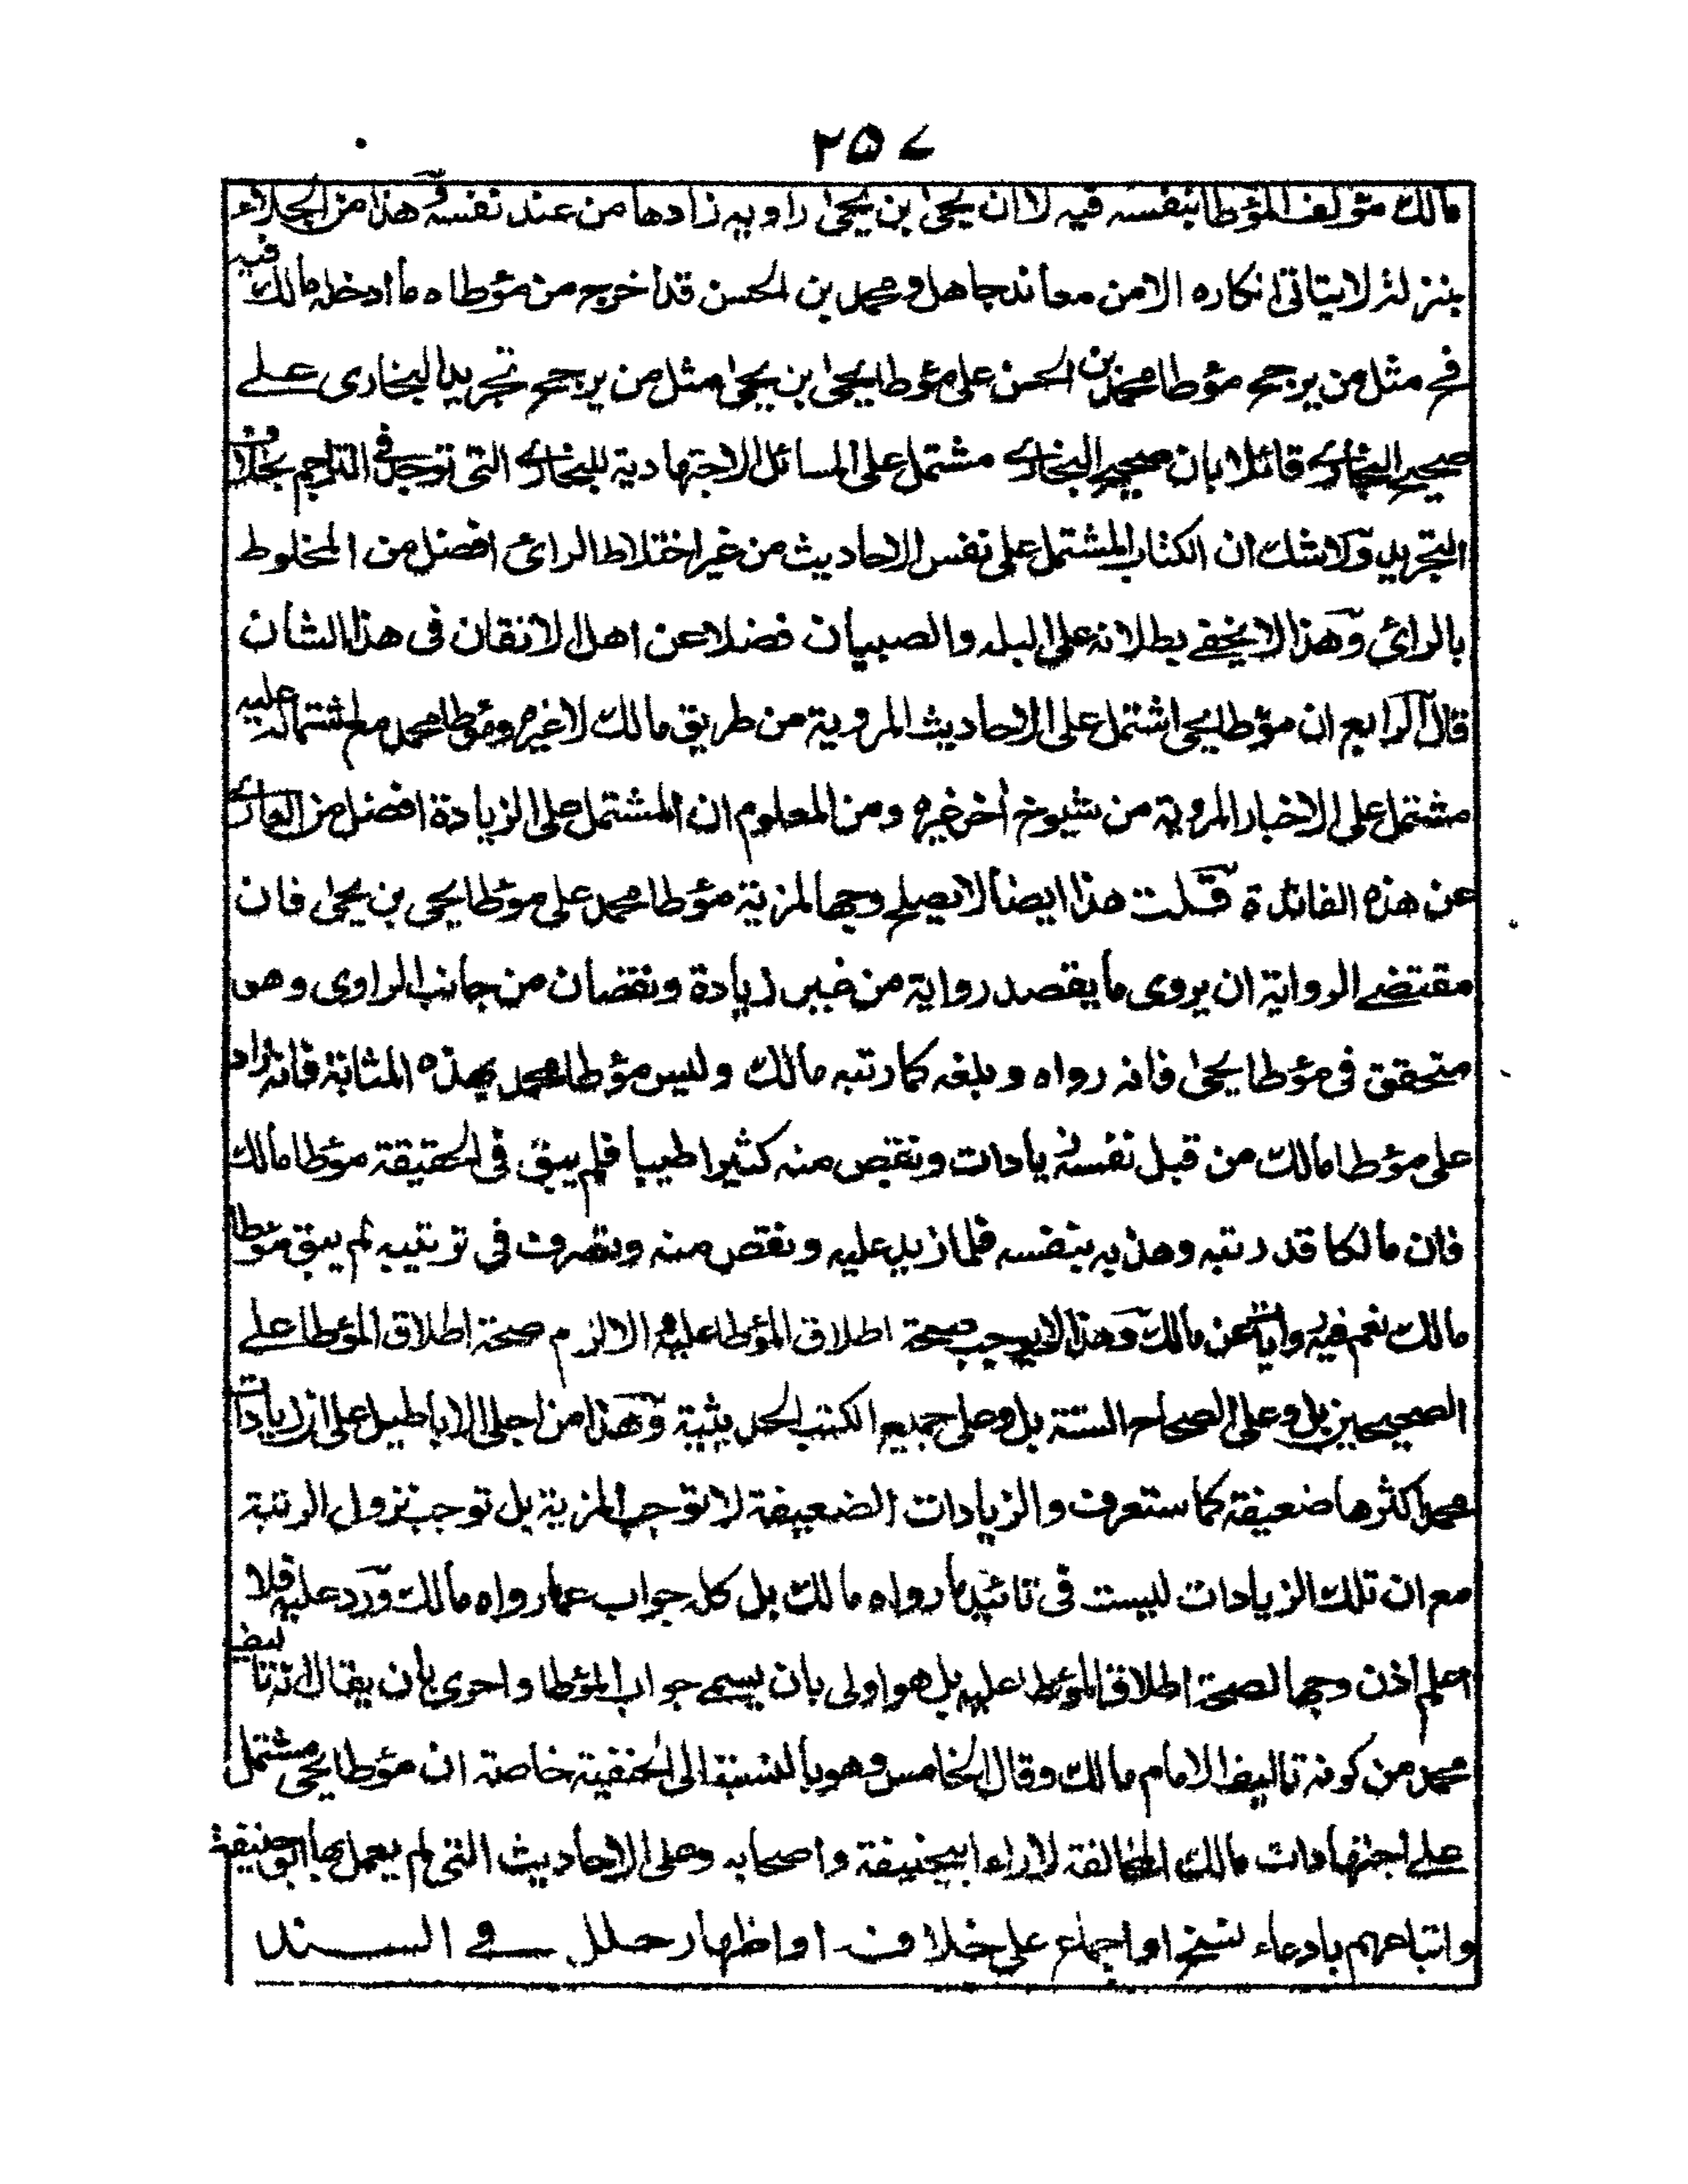 ٢٥٧
مالك مؤلف المؤطا بنفسه فيه لا ان يحيى بن يحيى راويه زادها من عند نفسه وهذا من الجلاء
بمنزلة لا يتاتى انكاره الا من معاند جاهل ومحمد بن الحسن قد اخرج من مؤطاه ما أدخله مالك فيه
فى مثل من يرجح مؤطا محمد بن الحسن على مؤطا يحيى بن يحيى مثل من يرجح تجريد البخارى على
صحيح البخارى قائلا بان صحيح البخارى مشتمل على المسائل الاجتهادية للبخارى التى توجد فى التراجم بخلاف
التجريد ولا شك ان الكتاب المشتمل على نفس الاحاديث من غير اختلاط الرائ افضل من المخلوط
بالرائ وهذا لا يخفى بطلانه على البله والصبيان فضلا عن اهل الاتقان فى هذا الشان
قال الرابع ان مؤطا يحيى اشتمل على الاحاديث المروية من طريق مالك لا غيره ومؤطا محمد مع اشتماله عليه
مشتمل على الاخبار المروية من شيوخ أخر غيره ومن المعلوم ان المشتمل على الزيادة افضل من العارى
عن هذه الفائدة قلت هذا ايضا لا يصلح وجها لمزية مؤطا محمد على مؤطا يحيى بن يحيى فان
مقتضى الرواية ان يروى ما يقصد رواية من غير زيادة ونقصان من جانب الراوى وهو
متحقق فى مؤطا يحيى فانه رواه وبلغه كما رتبه مالك وليس مؤطا محمد بهذه المثابة فانه زاد
على مؤطا مالك من قبل نفسه زيادات ونقص منه كثيرا طيبا فلم يبق فى الحقيقة مؤطا مالك
فان مالكا قد رتبه وهذبه بنفسه فلما زيد عليه ونقص منه وتصرف فى ترتيبه لم يبق مؤطا
مالك نعم فيه رواية عن مالك وهذا لا يوجب صحة اطلاق المؤطا عليه والا لزم صحة اطلاق المؤطا على
الصحيحين بل وعلى الصحاح الستة بل وعلى جميع الكتب الحديثية وهذا من اجلى الاباطيل على ان زيادات
محمد اكثرها ضعيفة كما ستعرف والزيادات الضعيفة لا توجب المزية بل توجب نزول الرتبة
مع ان تلك الزيادات ليست فى تائيد ما رواه مالك بل كله جواب عما رواه مالك ورد عليه فلا
اعلم اذن وجها لصحة اطلاق المؤطا عليه بل هو اولى بان يسمى جواب المؤطا واحرى بأن يقال انه تاليف
محمد من كونه تاليف الامام مالك وقال الخامس وهو بالنسبة الى الحنفية خاصة ان مؤطا يحيى مشتمل
على اجتهادات مالك المخالفة لاراء ابيحنيفة واصحابه وعلى الاحاديث التى لم يعمل بها ابو حنيفة
واتباعهم بادعاء نسخ او اجماع على خلافه او اظهار خلل فى السند